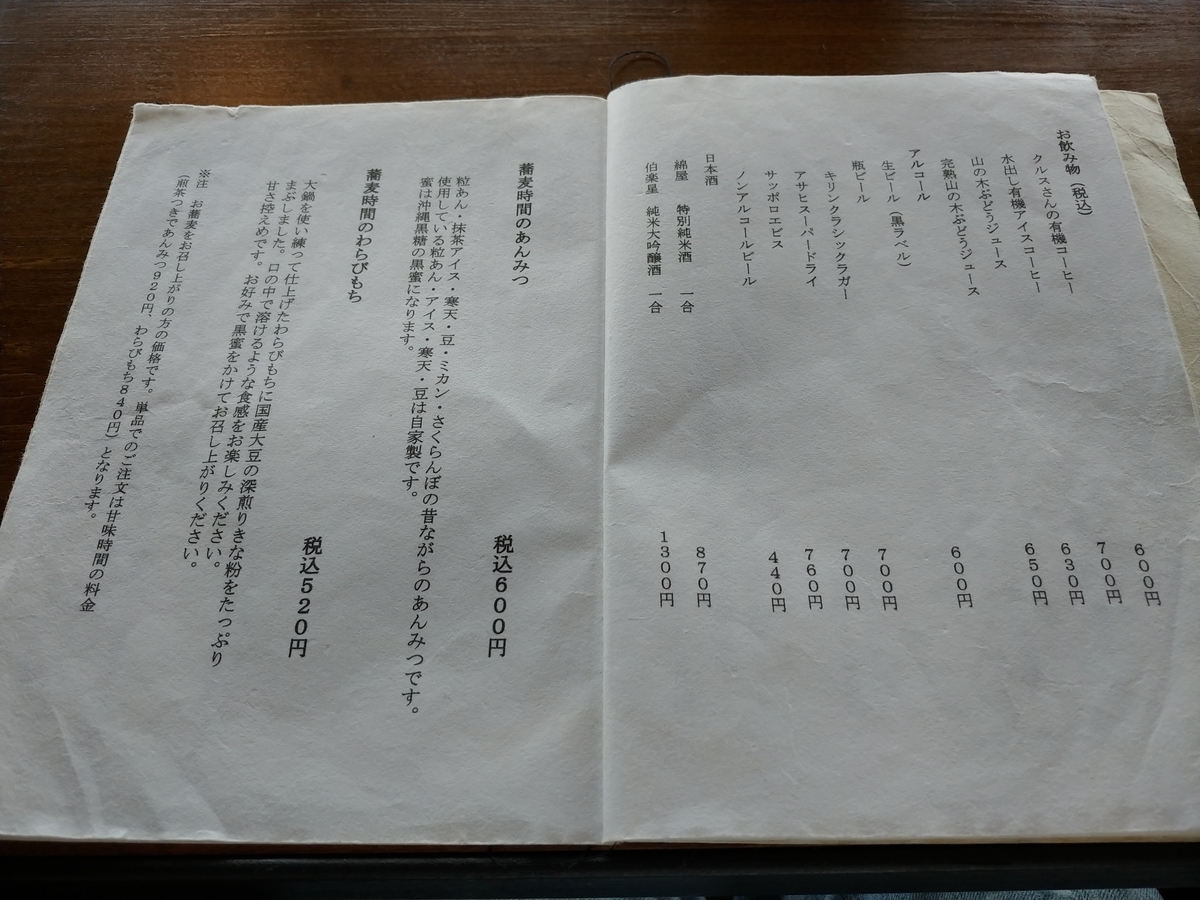 お飲み物（税込）
クルスさんの有機コーヒー　600円
水出し有機アイスコーヒー　700円
山の木ぶどうジュース　630円
完熟山の木ぶどうジュース　650円
アルコール
生ビール（黒ラベル）　600円
瓶ビール
キリンクラシックラガー　700円
アサヒスーパードライ　700円
サッポロエビス　760円
ノンアルコールビール　440円
日本酒
綿屋　特別純米酒　一合　870円
伯楽星　純米大吟醸酒　一合　1300円
蕎麦時間のあんみつ　税込600円
粒あん・抹茶アイス・寒天・豆・ミカン・さくらんぼの昔ながらのあんみつです。
使用している粒あん・アイス・寒天・豆は自家製です。
蜜は沖縄黒糖の黒蜜になります。
蕎麦時間のわらびもち　税込520円
大鍋を使い練って仕上げたわらびもちに国産大豆の深煎りきな粉をたっぷり
まぶしました。口の中で溶けるような食感をお楽しみください。
甘さ控えめです。お好みで黒蜜をかけてお召し上がりください。
※注　お蕎麦をお召し上がりの方の価格です。単品でのご注文は甘味時間の料金
（煎茶つきであんみつ920円、わらびもち840円）となります。